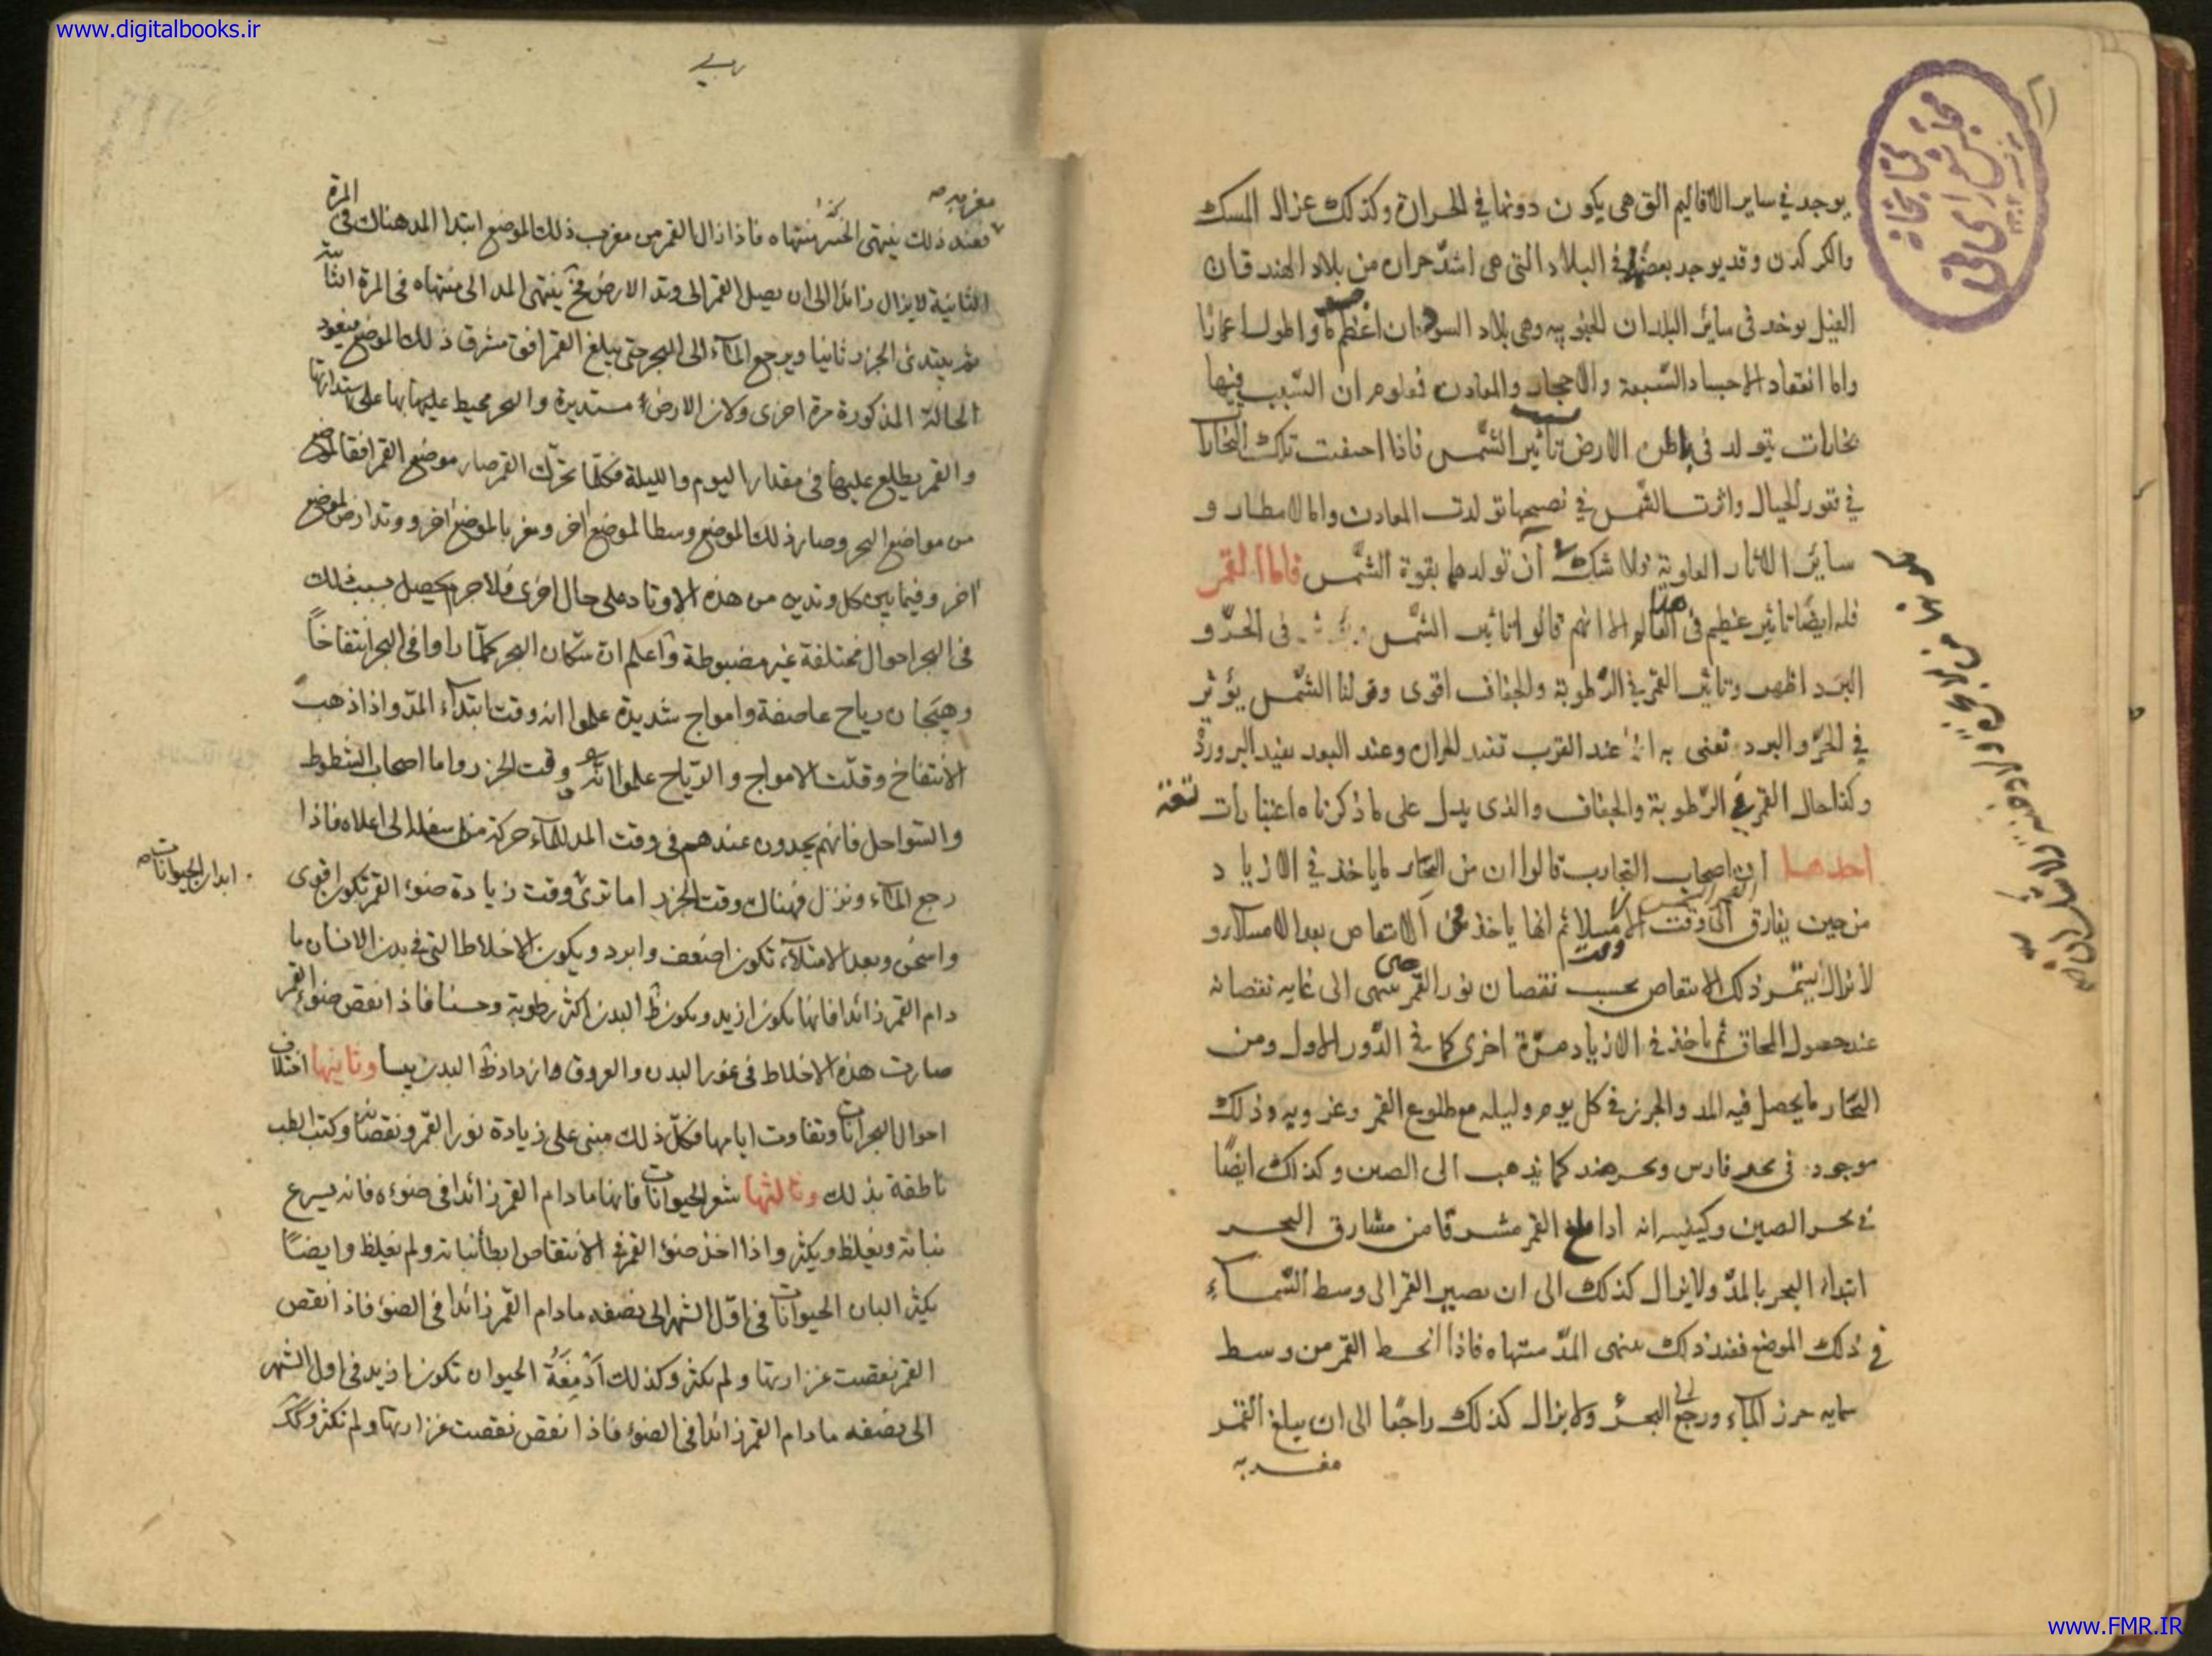 www.digitalbooks.ir
يوجد في ساير الاقاليم التي هي يكون دونها في الحرارة وكذلك غزال المسك
والكركدن وقد يوجد بعضها في البلاد التي هي اشدّ حرارة من بلاد الهند فان
الفيل يوجد في سائر البلدان الجنوبيه وهي بلاد السودان اعظم واطول اعمارا
واما انعقاد الاجساد السّبعة والاحجار والمعادن فعلوم ان السّبب فيها
بخارات يتولد في باطن الارض بتأثير الشّمس فاذا احتقنت تلك البخارات
في قعور الجبال واثرت الشّمس في نضجها تولدت المعادن واما الامطار و
سائر الاثار العلوية فلا شك ان تولدها بقوة الشّمس فاما القمر
فله ايضا تاثير عظيم في هذا العالم الا انهم قالوا تاثير الشّمس في الحرّ و
البرد اظهر وتاثير القمر في الرّطوبة والجفاف اقوى وقولنا الشّمس يؤثر
في الحرّ والبرد نعنى به انّ عند القرب تفيد الحرارة وعند البعد يفيد البرودة
وكذا حال القمر في الرّطوبة والجفاف والذى يدل على ما ذكرناه اعتبارات
احدها ان اصحاب التجارب قالوا ان من البحار ما ياخذ في الازدياد
من حين يفارق القمر الشمس الى وقت الامتلا ثم انها ياخذ في الانتقاص بعد الامتلاء و
لا يزال يستمر ذلك الانتقاص بحسب نقصان نور القمر حتى ينتهى الى غايه نقصانه
عند حصول المحاق ثم ياخذ في الازدياد مرّة اخرى كما في الدّور الاول ومن
البحار ما يحصل فيه المد والجزر في كل يوم وليله مع طلوع القمر وغروبه وذلك
موجود في بحر فارس وبحر هند كما يذهب الى الصين وكذلك ايضا
في بحر الصين وكيفيته انه اذا بلغ القمر مشرقا من مشارق البحر
ابتداء البحر بالمدّ ولا يزال كذلك الى ان يصير القمر الى وسط السّماء
في ذلك الموضع فعند ذلك ينتهى المدّ منتهاه فاذا انحط القمر من وسط
سمايه جزر الماء ورجع الى البحر ولا يزال كذلك راجعا الى ان يبلغ القمر
مغربه
مغربه
فعند ذلك ينتهى الجزر منتهاه فاذا زال القمر من مغرب ذلك الموضع ابتدا المد هناك في المرة
الثانية لا يزال زائدا الى ان يصل القمر الى وتد الارض فح ينتهى المد الى منتهاه في المرة الثانية
ثم يبتدئ الجزر ثانيا ويرجع الماء الى البحر حتى يبلغ القمر افق مشرق ذلك الموضع فيعود
الحالة المذكورة مرة اخرى ولان الارض مستديرة والبحر محيط عليها بها على استدارتها
والقمر يطلع عليها في مقدار اليوم والليلة فكلما تحرّك القمر صار موضع القمر افقا لموضع
من مواضع البحر وصار ذلك الموضع وسطا لموضع اخر ومغربا لموضع اخر ووتد ارض لموضع
اخر وفيما بين كل وتدين من هذه الاوتاد على حال اخرى فلا جرم يحصل بسبب ذلك
في البحر احوال مختلفة غير مضبوطة واعلم ان سكان البحر كلّما راوا في البحر انتفاخاً
وهيجان رياح عاصفة وامواج شديدة علموا انه وقت ابتداء المدّ واذا ذهب
الانتفاخ وقلّت الامواج والرّياح علموا انّه وقت الجزر واما اصحاب الشطوط
والسّواحل فانهم يجدون عندهم في وقت المد للماء حركة من اسفله الى اعلاه فاذا
رجع الماء ونزل فهناك وقت الجزر اما ترى وقت زيادة ضوء القمر تكون اقوى
ابدان الحيوانات
واسخن وبعد الامتلاء تكون اضعف وابرد ويكون الاخلاط التي في بدن الانسان ما
دام القمر زائدا فانها تكون ازيد ويكون ظ البدن اكثر رطوبة وحسنا فاذا نقص ضوء القمر
صارت هذه الاخلاط في غور البدن والعروق وازداد ظ البدن يبسا وثانيها اختلاف
احوال البحرانات وتفاوت ايامها فكلّ ذلك مبنى على زيادة نور القمر ونقصانه وكتب الطب
ناطقة بذلك وثالثها شعر الحيوانات فانها ما دام القمر زائدا في ضوءه فانه يسرع
نباته ويغلظ ويكثر واذا اخذ ضوء القمر في الانتقاص ابطأ نباته ولم يغلظ وايضاً
يكثر البان الحيوانات في اوّل الشهر الى نصفه ما دام القمر زائدا في الضوء فاذا نقص
القمر نقصت غزارتها ولم يكثر وكذلك ادمغة الحيوان تكون ازيد في اول الشهر
الى نصفه ما دام القمر زائدا في الضوء فاذا نقص نقصت غزارتها ولم تكثر وكك
www.FMR.IR